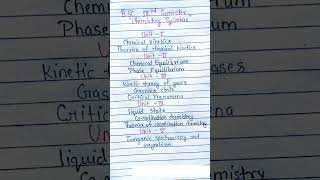 B.Sc IIIrd Semester
Chemistry Syllabus
Unit - I
Chemical kinetics
Theories of chemical kinetics
Unit - II
Chemical Equilibrium
Phase Equilibrium
Unit - III
Kinetic theory of gases
Gaseous state
Critical Phenomena
Unit - IV
liquid state
Co-ordination chemistry
Theories of coordination chemistry
Unit - V
Inorganic spectroscopy and
magnetism